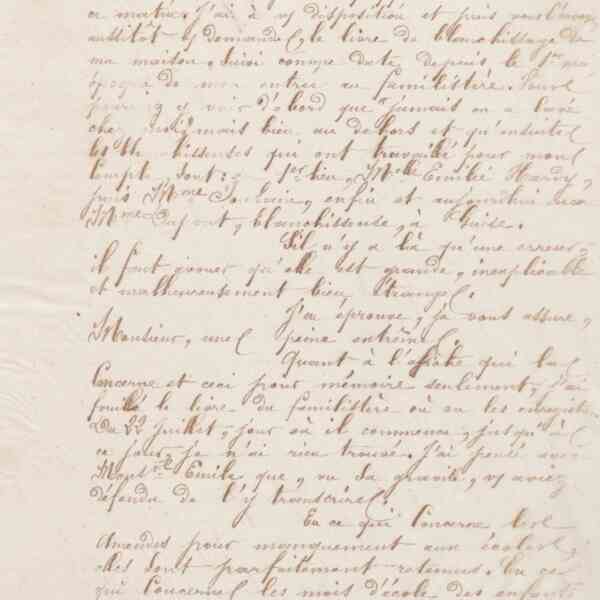 ce matin. J'ai à vs disposition et puis vous l'envoyer
aussitôt vs demandes, le livre de blanchissage de
ma maison, suivi comme date, depuis le 1er
époque de mon entrée au familistère. Vous
pourriez y voir d'abord que jamais on a lavé
chez moi, mais bien au dehors et qu'ensuite
les blanchisseuses qui ont travaillé pour mon
compte sont: 1er lieu, Melle Emilie Hardy,
puis Mme enfin et aujourd'hui
Mme Dupont, blanchisseuse, à Guise.
S'il n'y a là qu'une erreur,
il faut avouer qu'elle est grande, inexplicable
et malheureusement bien étrange.
J'en éprouve, je vous assure,
Monsieur, une peine extrême.
Quant à l'affiche qui la
concerne et ceci pour mémoire seulement, j'ai
fouillé le livre du familistère où on les enregistre
Du 22 juillet, jour où il commence, jusqu'à
ce jour, je n'ai rien trouvé. J'ai pensé avec
Emilie que, vu sa gravité, vs aviez
défendu de l'y transcrire.
En ce qui concerne les
amendes pour manquement aux écoles,
elles sont parfaitement retenues. En ce
qui concerne les mois d'école des enfants